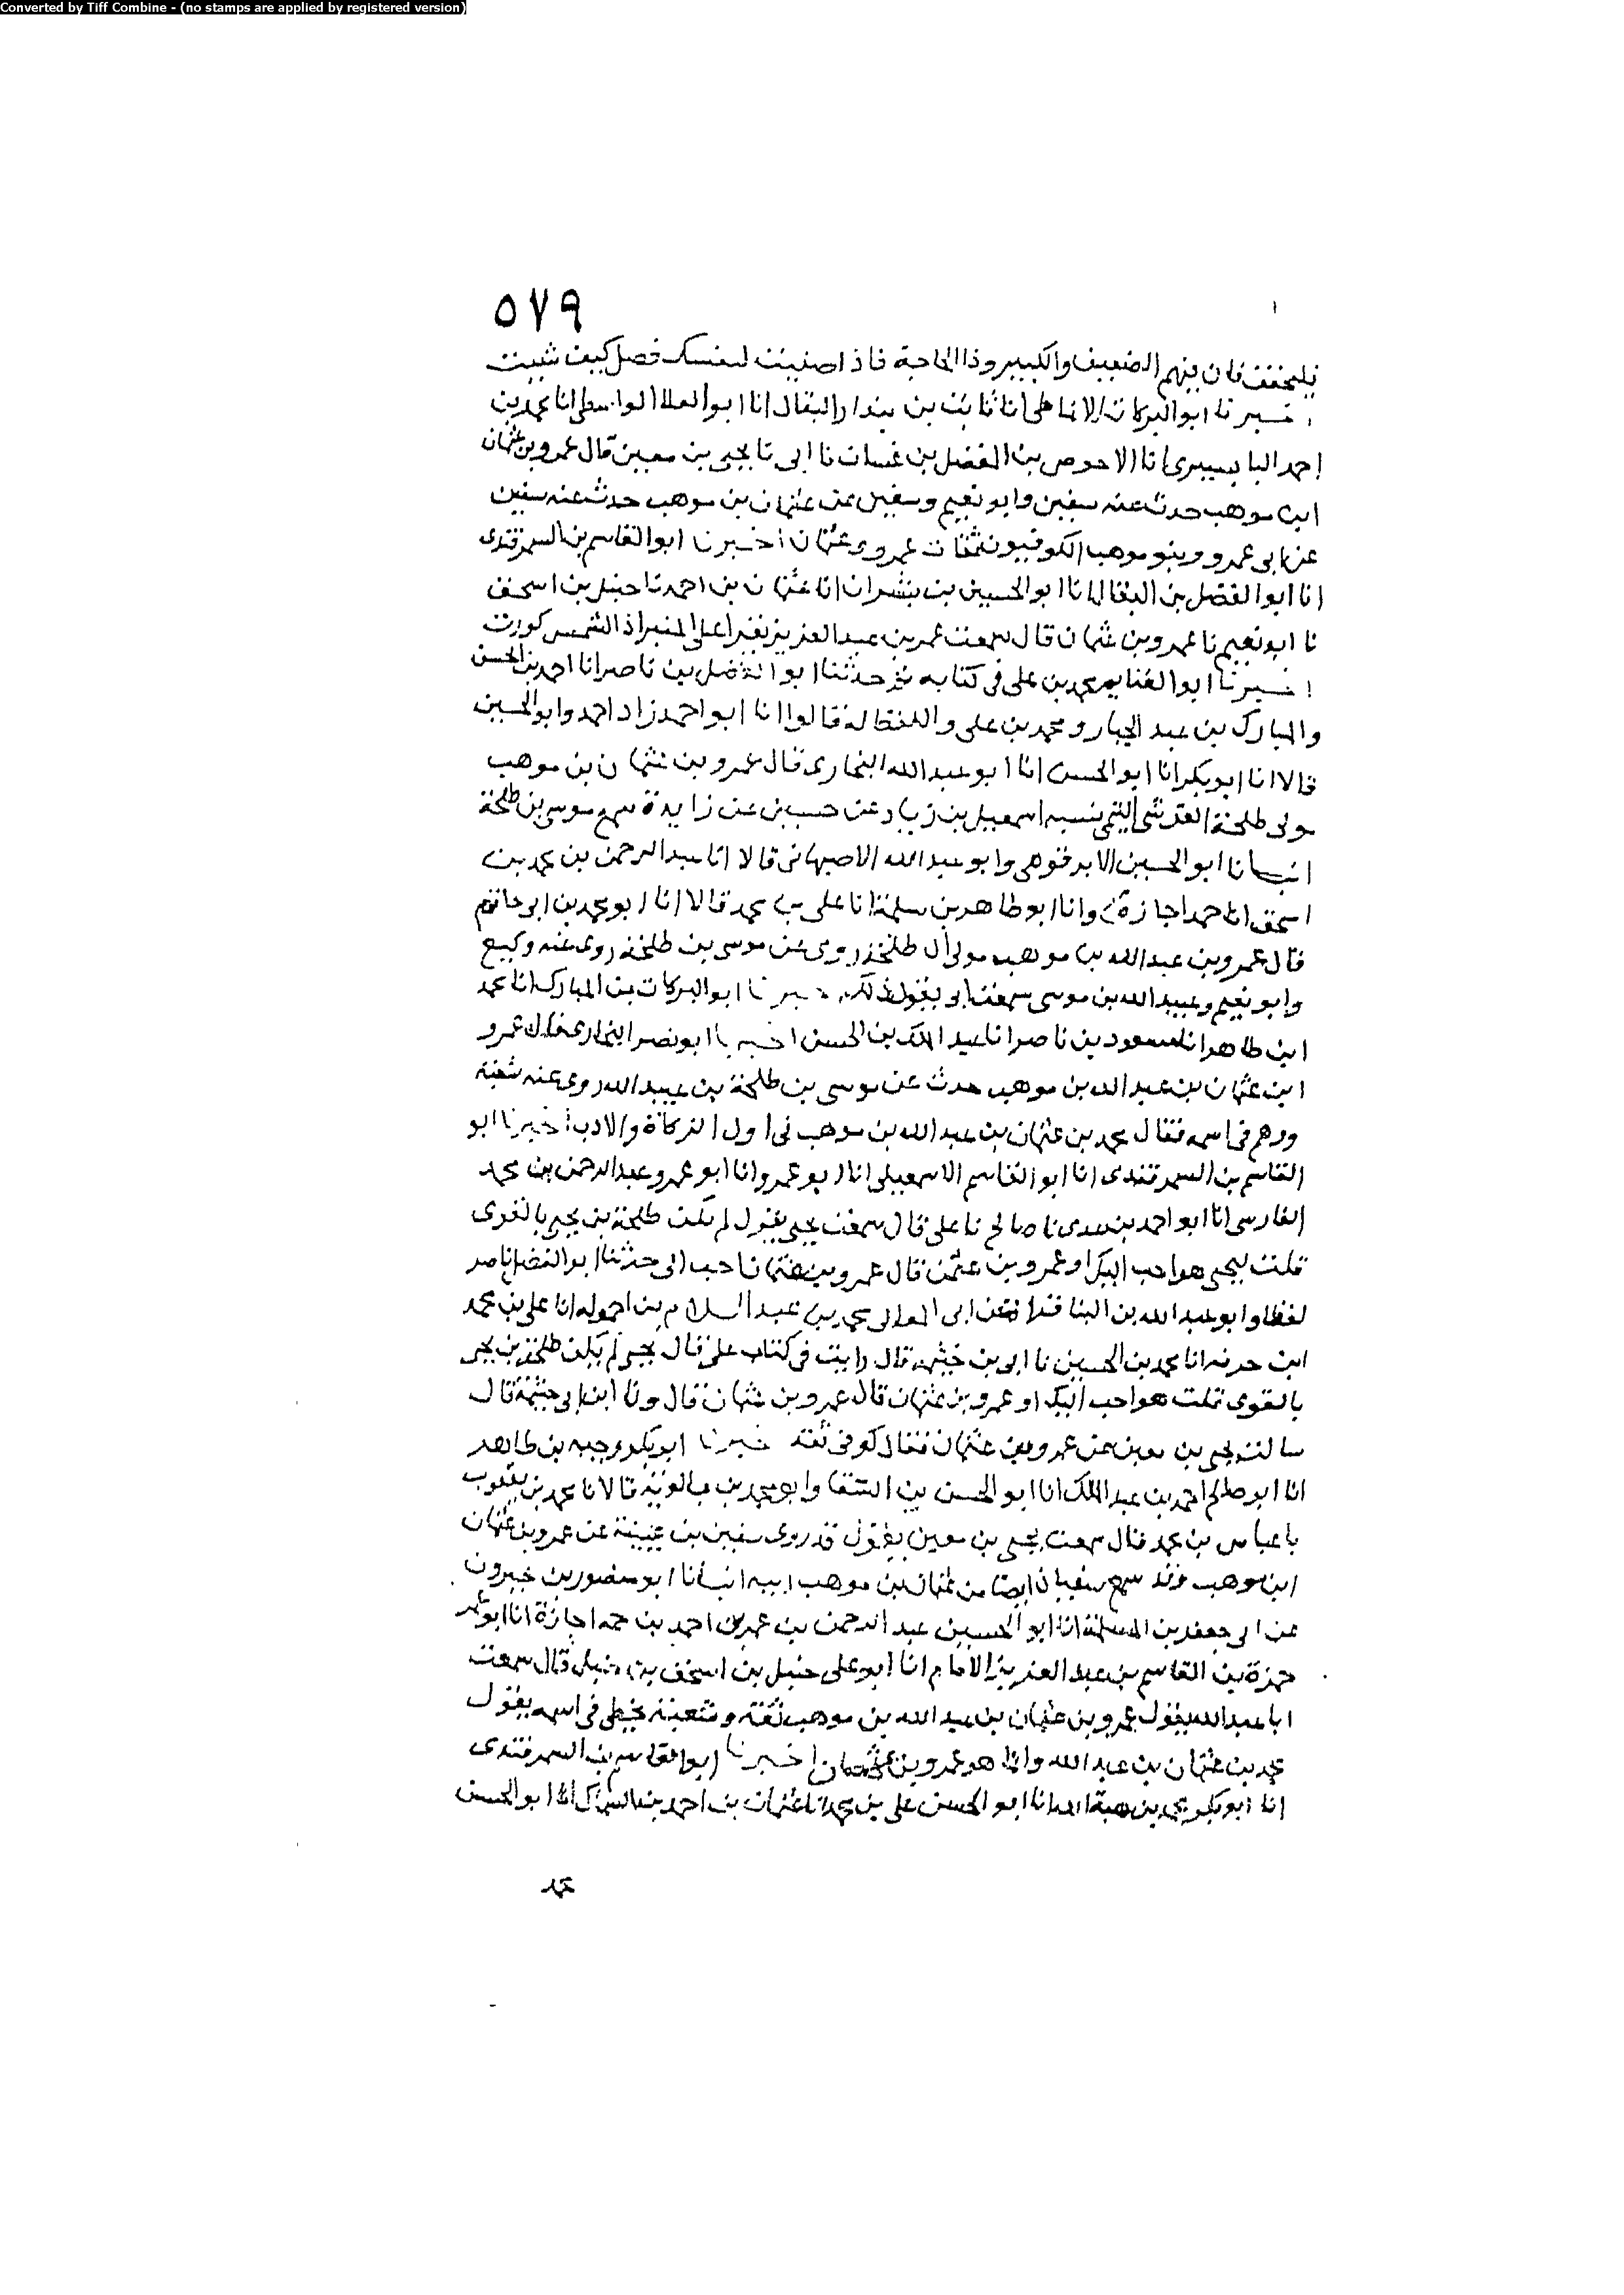 Converted by Tiff Combine - (no stamps are applied by registered version)
٥٧٩
فليخفف فان فيهم الضعيف والكبير وذا الحاجة فاذا صليت لنفسك فصل كيف شيت
اخبرنا ابو البركات الانماطي انا ثابت بن بندار البقال انا ابو العلا الواسطي انا محمد بن
احمد البابسيري انا الاحوص بن الفضل بن غسان نا ابي نا يحيى بن معين قال عمرو بن عثمان
ابن موهب حدث عنه سفين وابو نعيم وسفين عن عثمان بن موهب حدث عنه سفين
عن ابي عمرو وبنو موهب الكوفيون ثقات عمرو وعثمان اخبرنا ابو القاسم بن السمرقندي
انا ابو الفضل بن البقال انا ابو الحسين بن بشران انا عثمان بن احمد نا حنبل بن اسحق
نا ابو نعيم نا عمرو بن عثمان قال سمعت عمر بن عبد العزيز يقرا على المنبر اذا الشمس كورت
اخبرنا ابو الغنايم محمد بن علي في كتابه ثم حدثنا ابو الفضل بن ناصر انا احمد بن الحسن
والمبارك بن عبد الجبار ومحمد بن علي واللفظ له قالوا انا ابو احمد زاد احمد وابو الحسين
قالا انا ابو بكر انا ابو الحسن انا ابو عبد الله البخاري قال عمرو بن عثمان بن موهب
مولى طلحة القرشي التيمي نسبه اسمعيل بن زياد عن حسين عن زايدة سمع موسى بن طلحة
انبانا ابو الحسين الابرقوهي وابو عبد الله الاصبهاني قالا انا عبد الرحمن بن محمد بن
اسحق انا حمد اجازة وانا ابو طاهر بن سلمة انا علي بن محمد قالا انا ابو محمد بن ابي حاتم
قال عمرو بن عبد الله بن موهب مولى آل طلحة روى عن موسى بن طلحة روى عنه وكيع
وابو نعيم وعبيد الله بن موسى سمعت ابي يقول ذلك اخبرنا ابو البركات بن المبارك انا محمد
ابن طاهر انا مسعود بن ناصر انا عبد الملك بن الحسن اخبرنا ابو نصر البخاري قال عمرو
ابن عثمان بن عبد الله بن موهب حدث عن موسى بن طلحة بن عبيد الله روى عنه شعبة
ووهم في اسمه فقال محمد بن عثمان بن عبد الله بن موهب في اول الزكاة والادب اخبرنا ابو
القاسم بن السمرقندي انا ابو القاسم الاسمعيلي انا ابو عمرو انا ابو عمرو عبد الرحمن بن محمد
الفارسي انا ابو احمد بن عدي نا صالح نا علي قال سمعت يحيى يقول لم يكن طلحة بن يحيى بالقوي
قلت ليحيى هو احب اليك او عمرو بن عثمن قال عمرو بن عثمان احب الي حدثنا ابو الفضل بن ناصر
لفظا وابو عبد الله بن البنا قراة عن ابي المعالي محمد بن عبد السلام بن احموله انا علي بن محمد
ابن خزفه انا محمد بن الحسين نا ابي بن خيثمه قال رايت في كتاب علي قال يحيى لم يكن طلحة بن يحيى
بالقوي قلت هو احب اليك او عمرو بن عثمان قال عمرو بن عثمان قال ونا ابن ابي خيثمة قال
سالت يحيى بن معين عن عمرو بن عثمان فقال كوفي ثقة اخبرنا ابو بكر وجيه بن طاهر
انا ابو صالح احمد بن عبد الملك انا ابو الحسن بن السقا وابو محمد بن بالويه قالا نا محمد بن يعقوب
نا عباس بن محمد قال سمعت يحيى بن معين يقول قد روى سفين بن عيينة عن عمرو بن عثمان
ابن موهب وقد سمع سفيان ايضا من عثمان بن موهب ابيه انبانا ابو منصور بن خيرون
عن ابي جعفر بن المسلمة انا ابو الحسين عبد الرحمن بن عمر بن احمد بن حمه اجازة انا ابو عمر
حمزة بن القاسم بن عبد العزيز الامام انا ابو علي حنبل بن اسحق بن حنبل قال سمعت
ابا عبد الله يقول عمرو بن عثمان بن عبد الله بن موهب ثقة وشعبة يخطي في اسمه يقول
محمد بن عثمان بن عبد الله وانما هو عمرو بن عثمان اخبرنا ابو القاسم بن السمرقندي
انا ابو بكر محمد بن هبة الله انا ابو الحسن علي بن محمد انا عثمان بن احمد بن السماك انا ابو الحسن
محمد